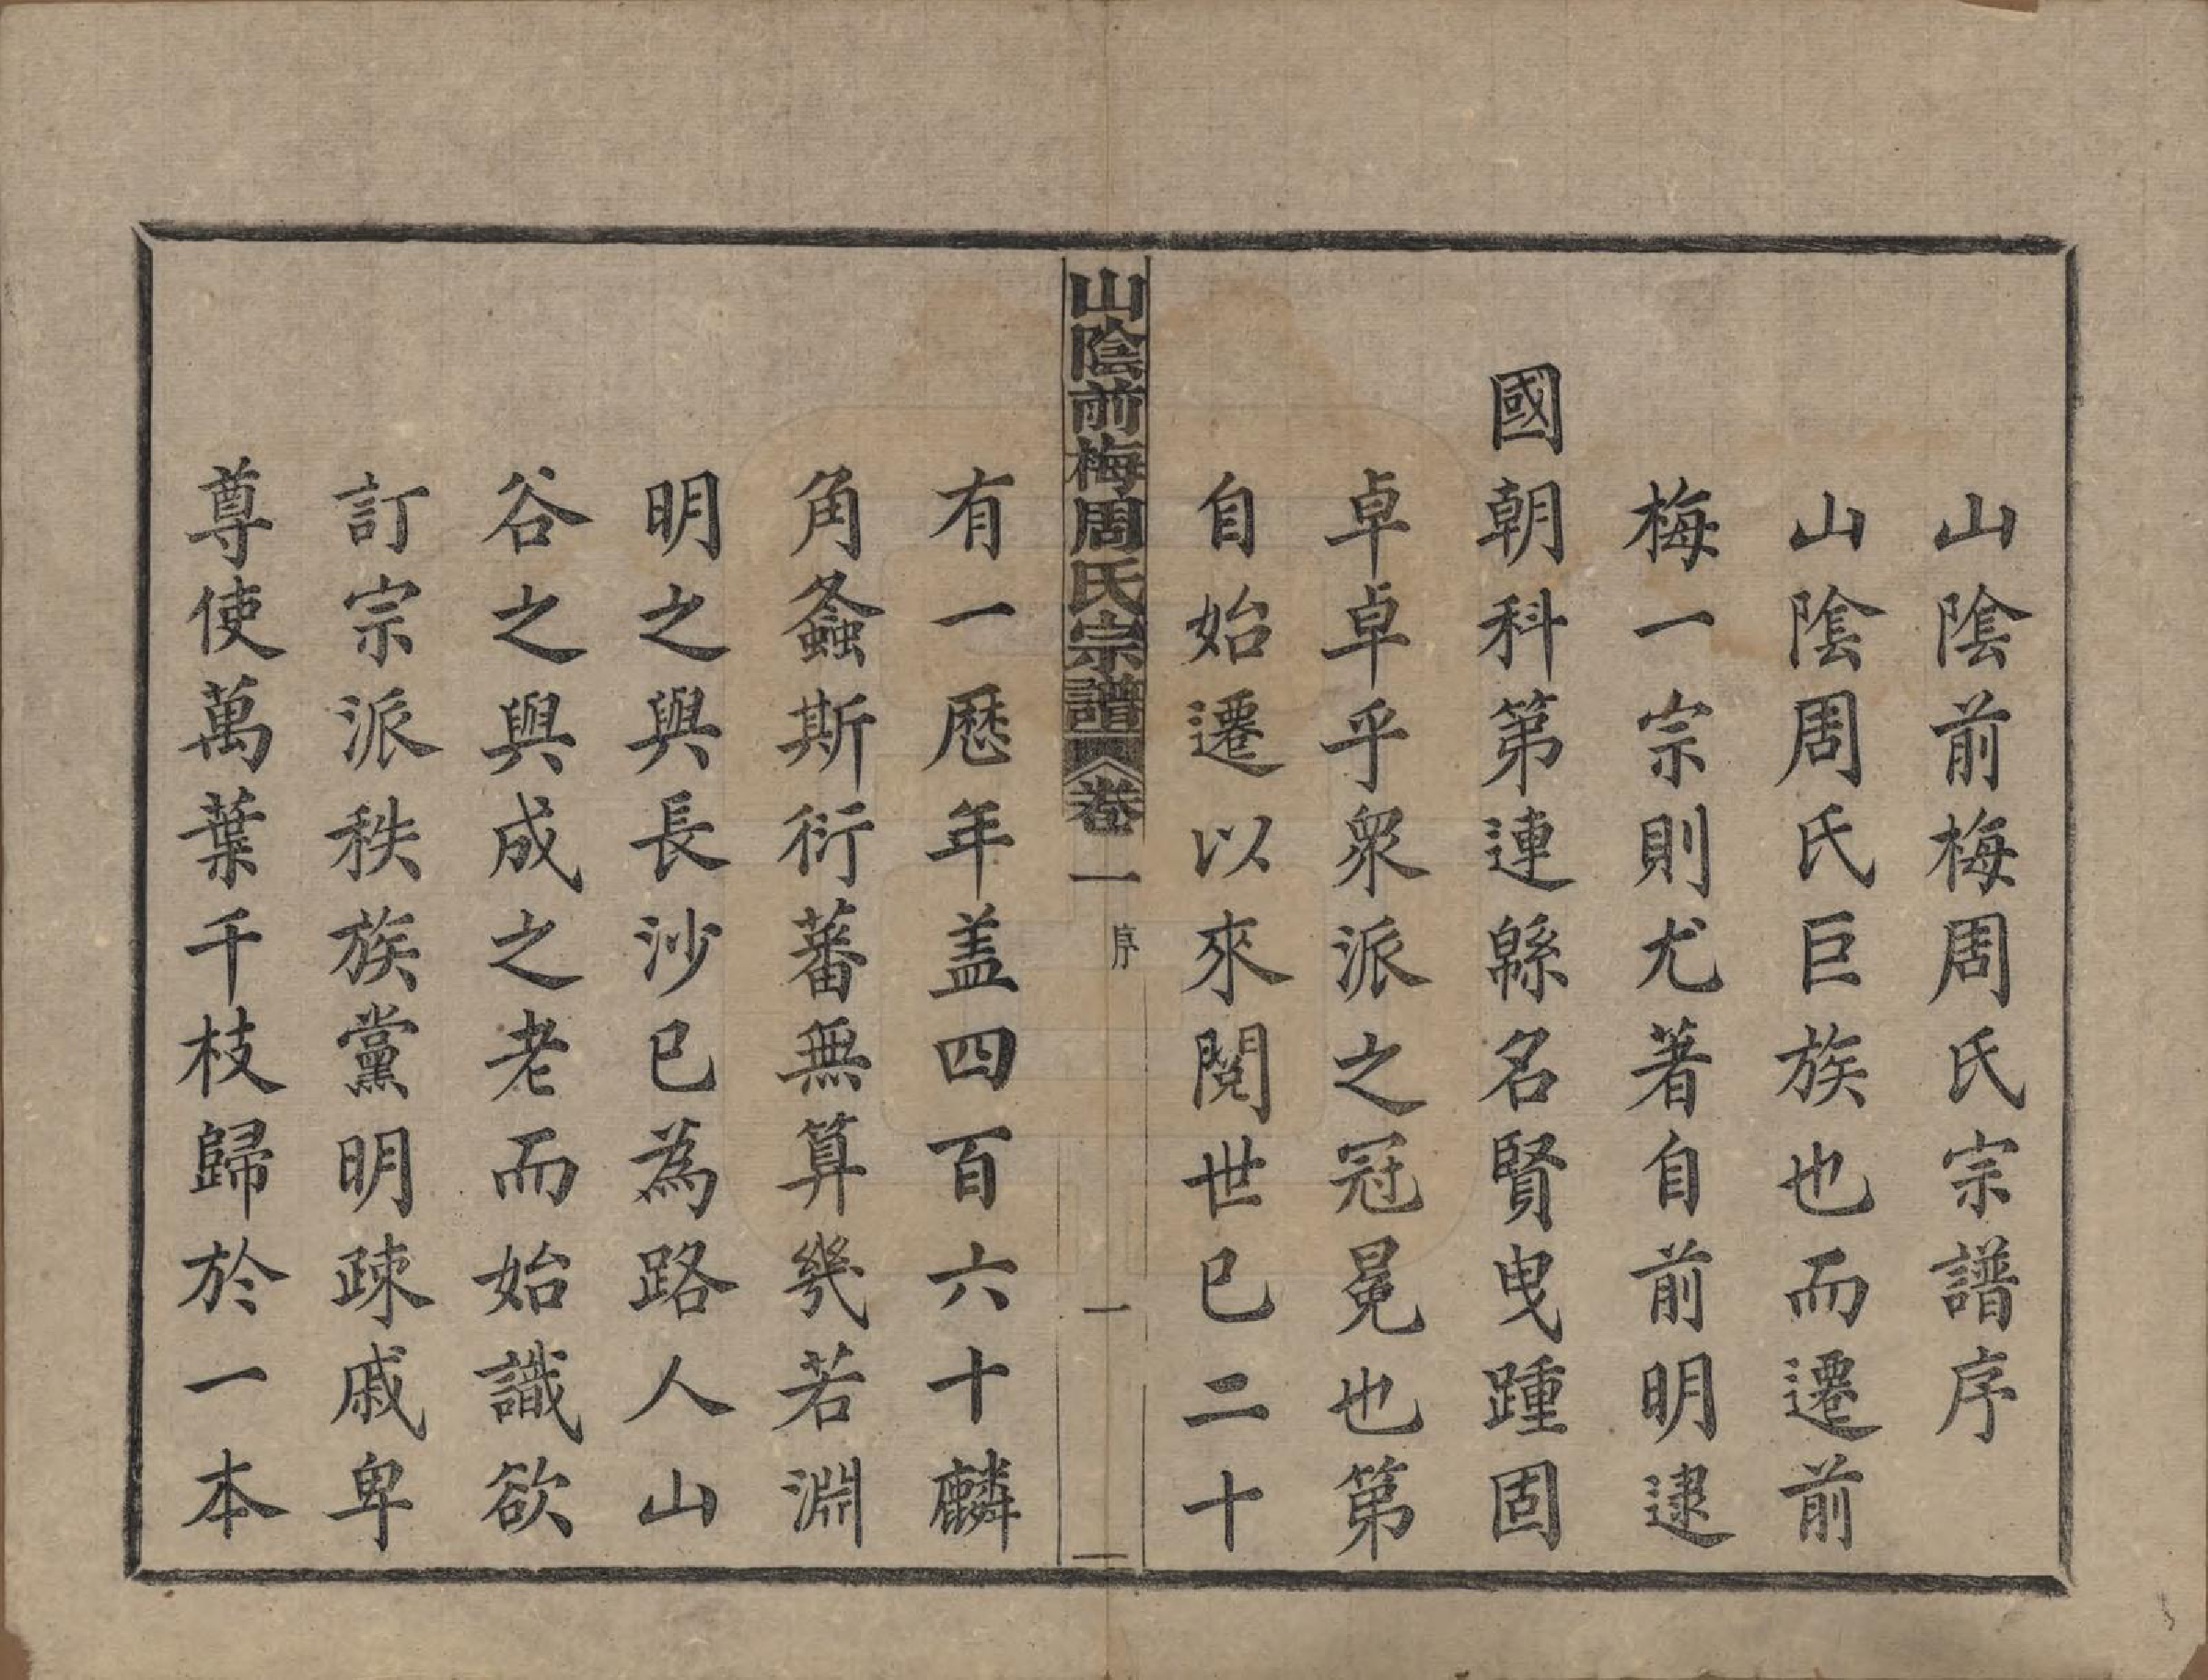 山陰前梅周氏宗譜序
山陰周氏巨族也而遷前
梅一宗則尤著自前明逮
國朝科第連緜名賢曳踵固
卓卓乎衆派之冠冕也第
自始遷以來閱世已二十
山陰前梅周氏宗譜 卷一 序 一
有一歷年盖四百六十麟
角螽斯衍蕃無算幾若淵
明之與長沙已為路人山
谷之與成之老而始識欲
訂宗派秩族黨明疎戚卑
尊使萬葉千枝歸於一本